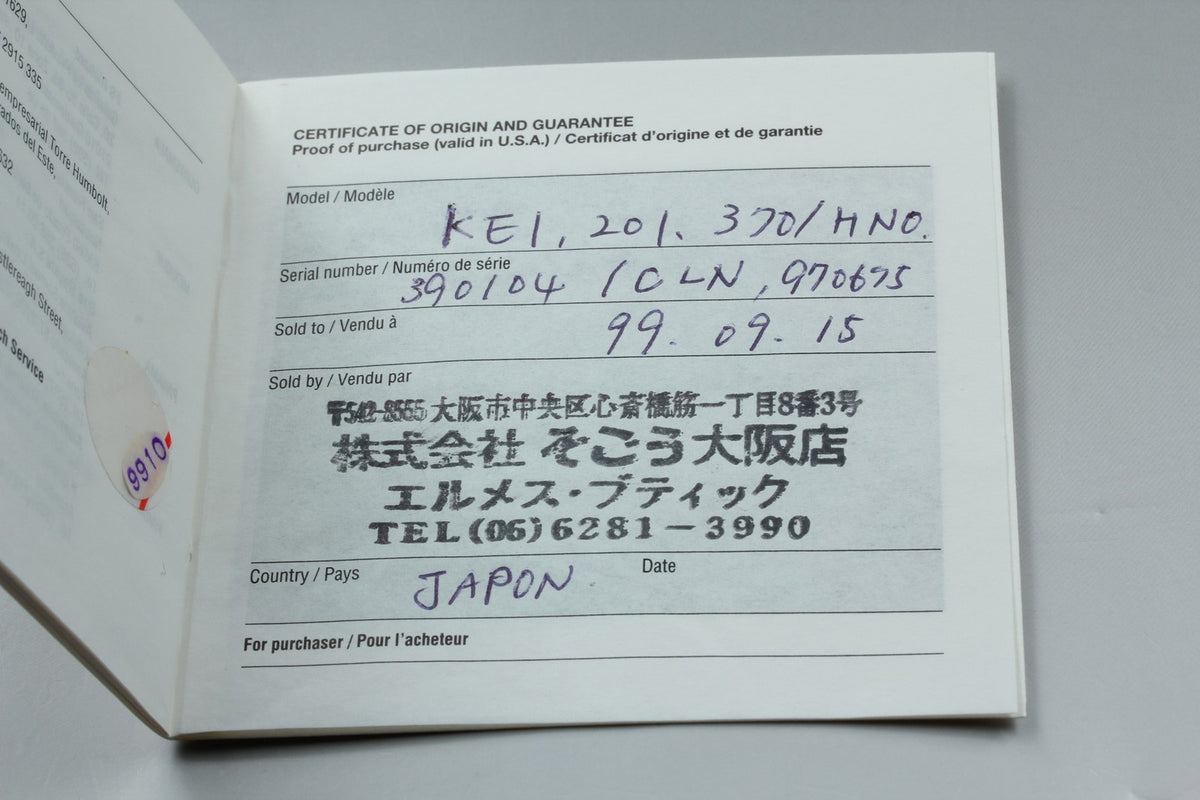 1629,
2915 335
empresarial Torre Humbolt,
ados del Este,
632
stlereagh Street,
ch Service
9910
CERTIFICATE OF ORIGIN AND GUARANTEE
Proof of purchase (valid in U.S.A.) / Certificat d'origine et de garantie
Model / Modèle
KE1, 201. 370/HNO.
Serial number / Numéro de série
390104 /CLN, 970675
Sold to / Vendu à
99. 09. 15
Sold by / Vendu par
〒542-8555 大阪市中央区心斎橋筋一丁目8番3号
株式会社 そごう大阪店
エルメス・ブティック
TEL(06)6281-3990
Country / Pays JAPON Date
For purchaser / Pour l'acheteur